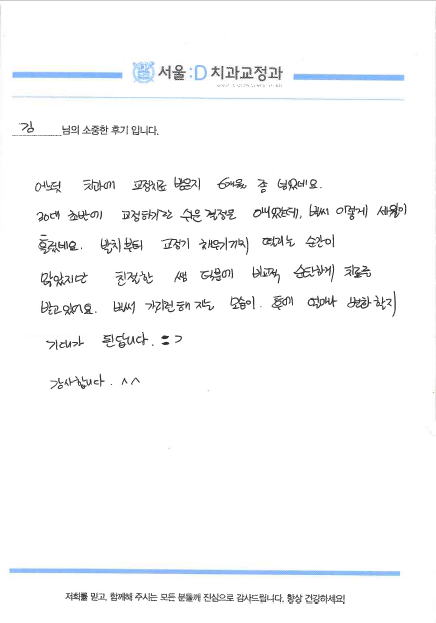 서울:D 치과교정과
김 님의 소중한 후기 입니다.
어느덧 치과에 교정치료 받은지 6개월 좀 넘었네요.
20대 초반에 교정하기란 쉬운 결정은 아니였는데, 벌써 이렇게 세월이
흘렀네요. 발치부터 교정기 채우기까지 떨리는 순간이
많았지만 친절한 쌤 덕분에 비교적 순탄하게 치료중
받고있어요. 벌써 가지런해 지는 모습이. 후에 얼마나 변화할지
기대가 된답니다. :)
감사합니다. ^^
저희를 믿고, 함께해 주시는 모든 분들께 진심으로 감사드립니다. 항상 건강하세요!